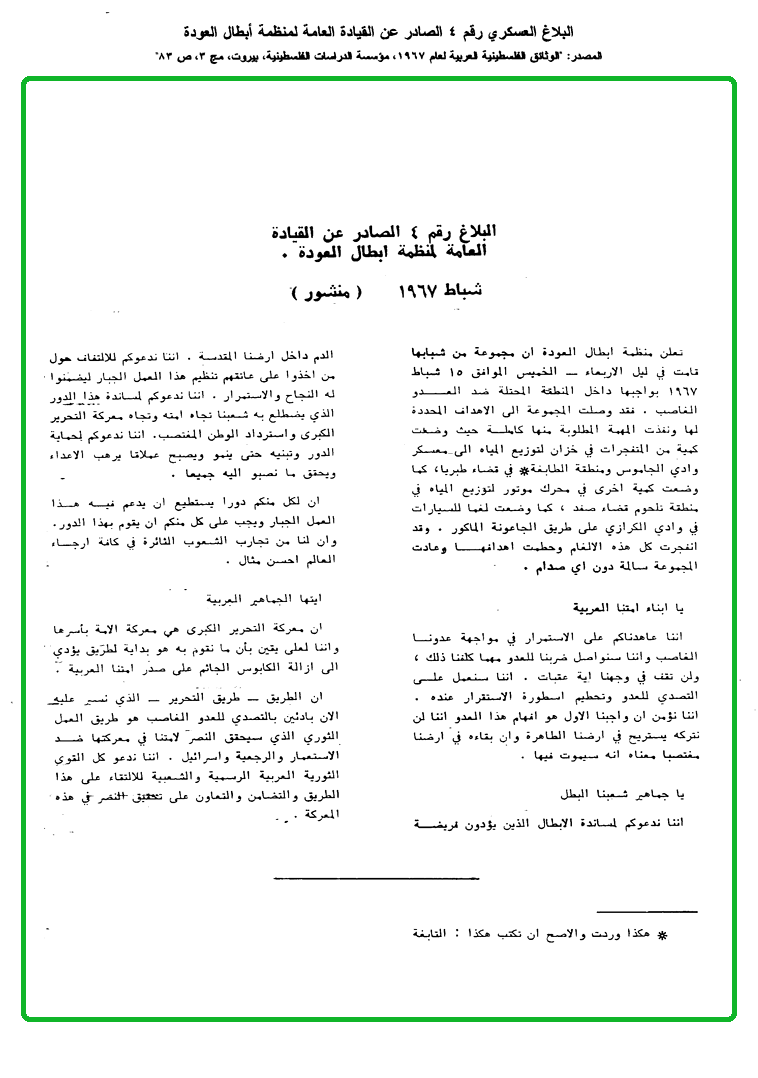 البلاغ العسكري رقم ٤ الصادر عن القيادة العامة لمنظمة أبطال العودة
المصدر: "الوثائق الفلسطينية العربية لعام ١٩٦٧، مؤسسة الدراسات الفلسطينية، بيروت، مج ٣، ص ٨٣"
البلاغ رقم ٤ الصادر عن القيادة
العامة لمنظمة ابطال العودة .
شباط ١٩٦٧ ( منشور )
تعلن منظمة ابطال العودة ان مجموعة من شبابها
قامت في ليل الاربعاء — الخميس الموافق ١٥ شباط
١٩٦٧ بواجبها داخل المنطقة المحتلة ضد العــدو
الغاصب . فقد وصلت المجموعة الى الاهداف المحددة
لها ونفذت المهمة المطلوبة منها كاملـة حيث وضعت
كمية من المتفجرات في خزان لتوزيع المياه الى معسكر
وادي الجاموس ومنطقة الطابغة* في قضاء طبريا، كما
وضعت كمية اخرى في محرك موتور لتوزيع المياه في
منطقة تلحوم قضاء صفد ، كما وضعت لغما للسيارات
في وادي الكرازي على طريق الجاعونة الماكور . وقد
انفجرت كل هذه الالغام وحطمت اهدافهـا وعادت
المجموعة سالمة دون اي صدام .
يا ابناء امتنا العربية
اننا عاهدناكم على الاستمرار في مواجهة عدونـا
الغاصب واننا سنواصل ضربنا للعدو مهما كلفنا ذلك ،
ولن تقف في وجهنا اية عقبات . اننا سنعمل علـى
التصدي للعدو وتحطيم اسطورة الاستقرار عنده .
اننا نؤمن ان واجبنا الاول هو افهام هذا العدو اننا لن
نتركه يستريح في ارضنا الطاهرة وان بقاءه في ارضنا
مغتصبا معناه انه سيموت فيها .
يا جماهير شعبنا البطل
اننا ندعوكم لمساندة الابطال الذين يؤدون فريضـة
الدم داخل ارضنا المقدسة . اننا ندعوكم للالتفاف حول
من اخذوا على عاتقهم تنظيم هذا العمل الجبار ليضمنوا
له النجاح والاستمرار . اننا ندعوكم لمساندة هذا الدور
الذي يضطلع به شعبنا تجاه امته وتجاه معركة التحرير
الكبرى واسترداد الوطن المغتصب. اننا ندعوكم لحماية
الدور وتبنيه حتى ينمو ويصبح عملاقا يرهب الاعداء
ويحقق ما نصبو اليه جميعا .
ان لكل منكم دورا يستطيع ان يدعم فيـه هـذا
العمل الجبار ويجب على كل منكم ان يقوم بهذا الدور.
وان لنا من تجارب الشعوب الثائرة في كافة ارجـاء
العالم احسن مثال .
ايتها الجماهير العربية
ان معركة التحرير الكبرى هي معركة الامة بأسرها
واننا لعلى يقين بأن ما نقوم به هو بداية لطريق يؤدي
الى ازالة الكابوس الجاثم على صدر امتنا العربية .
ان الطريق — طريق التحرير — الذي نسير عليه
الان بادئين بالتصدي للعدو الغاصب هو طريق العمل
الثوري الذي سيحقق النصر لامتنا في معركتها ضـد
الاستعمار والرجعية واسرائيل . اننا ندعو كل القوى
الثورية العربية الرسمية والشعبية للالتقاء على هذا
الطريق والتضامن والتعاون على تحقيق النصر في هذه
المعركة .
* هكذا وردت والاصح ان تكتب هكذا : التابغة